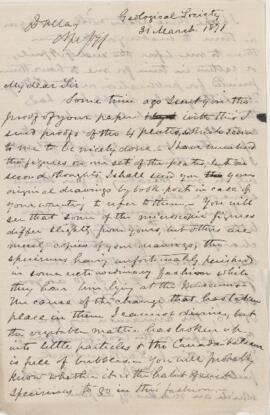 Geological Society
31 March 1891
My dear Sir
Some time ago I sent you the
proof of your paper with this I
send proofs of the 4 plates, which seem
to me to be nicely done. I have numbered
the figures on one set of the plates, but on
second thoughts, I shall send you your
original drawings by book post in case of
your wanting to refer to them. You will
see that some of the microscopic figures
differ slightly from yours, but others are
merely copies of your drawings, the
specimens having unfortunately perished
in some extraordinary fashion while
they have been lying at the
The cause of the change that has taken
place in them I cannot divine, but
the vegetable matter has broken up
into little particles & the Canada balsam
is full of bubbles. You will probably
know whether it is the habit of such
specimens to go in this fashion.